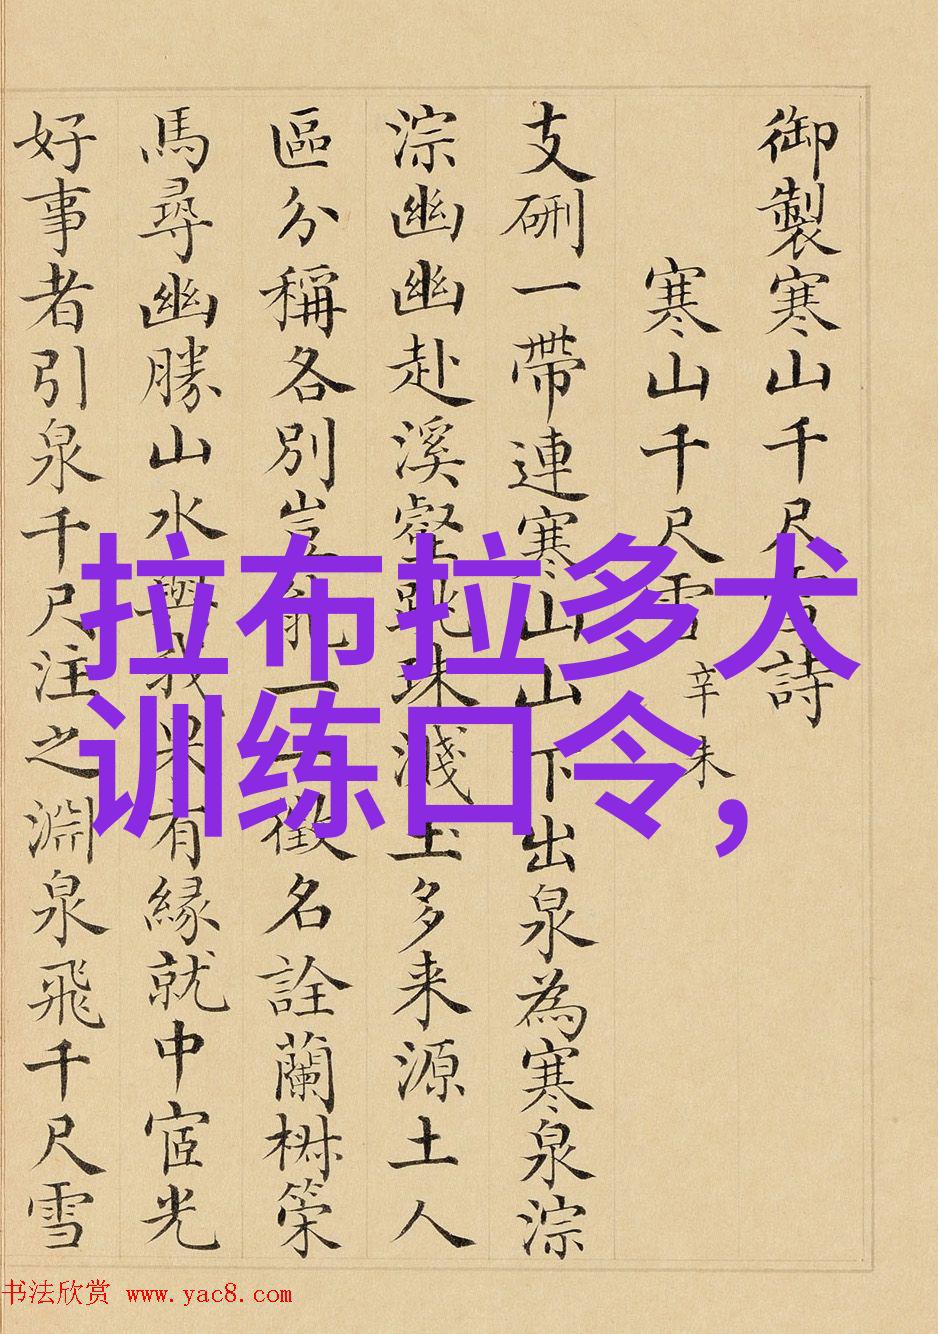 御製寒山千尺雪詩
寒山千尺雪 辛未
支硎一帶連寒山山下出泉為寒泉淙
淙幽幽赴溪壑跳珠濺玉多来源土人
區分稱各別豈能一一徵名詮蘭椒策
馬尋幽勝山水與我果有緣就中宧光
好事者引泉千尺注之淵泉飛千尺雪
拉布拉多犬
训练口令，
书法欣赏 www.yac8.com